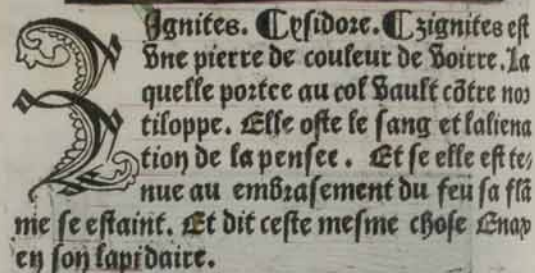 Zignites. ¶ Ysidore. ¶ Zignites est
vne pierre de couleur de voirre. La
quelle portee au col vault cõtre noꝛ
tiloppe. Elle oste le sang et laliena
tion de la pensee. Et se elle est te/
nue au embrasement du feu sa flã
me se estaint. Et dit ceste mesme chose Enax
en son lapidaire.